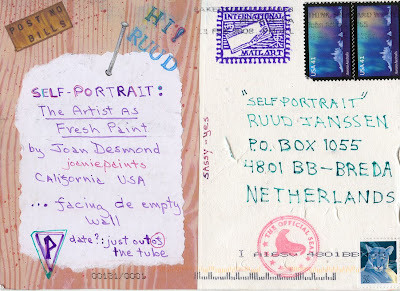 POST NO
BILLS
HI!
RUUD
SELF-PORTRAIT:
The Artist As
Fresh Paint
by Joan Desmond
joaniepaints
California USA
... facing de empty
wall
P
date?: just out of
the tube
00151/0001
SASSY-YES
INTERNATIONAL
MAIL ART
USA 41
USA 41
"SELF PORTRAIT"
RUUD JANSSEN
P.O. BOX 1055
4801 BB-BREDA
NETHERLANDS
THE OFFICIAL SEAL